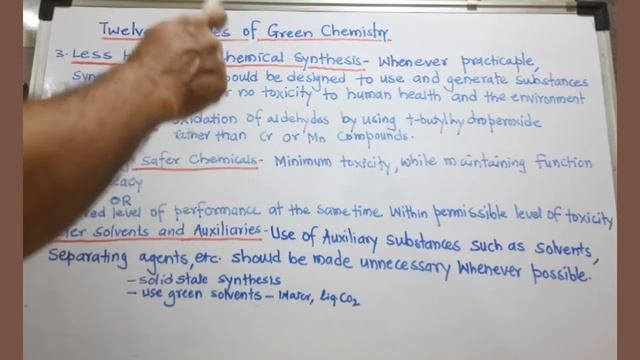 Twelve es of Green Chemistry
3. Less H hemical Synthesis- Whenever practicaple,
Syn ould be designed to use and generate substances
r no toxicity to human health and the environment
oxidation of aldehydes by using t-butylhydroperoxide
rather than Cr or Mn Compounds.
Safer Chemicals- Minimum toxicity, while maintaining function
cacy
OR
red level of performance at the same time within permissible level of toxicity
er Solvents and Auxiliaries- Use of Auxiliary substances such as solvents,
Separating agents, etc. should be made unnecessary whenever possible.
- solid state synthesis
- use green solvents - Water, liq CO2